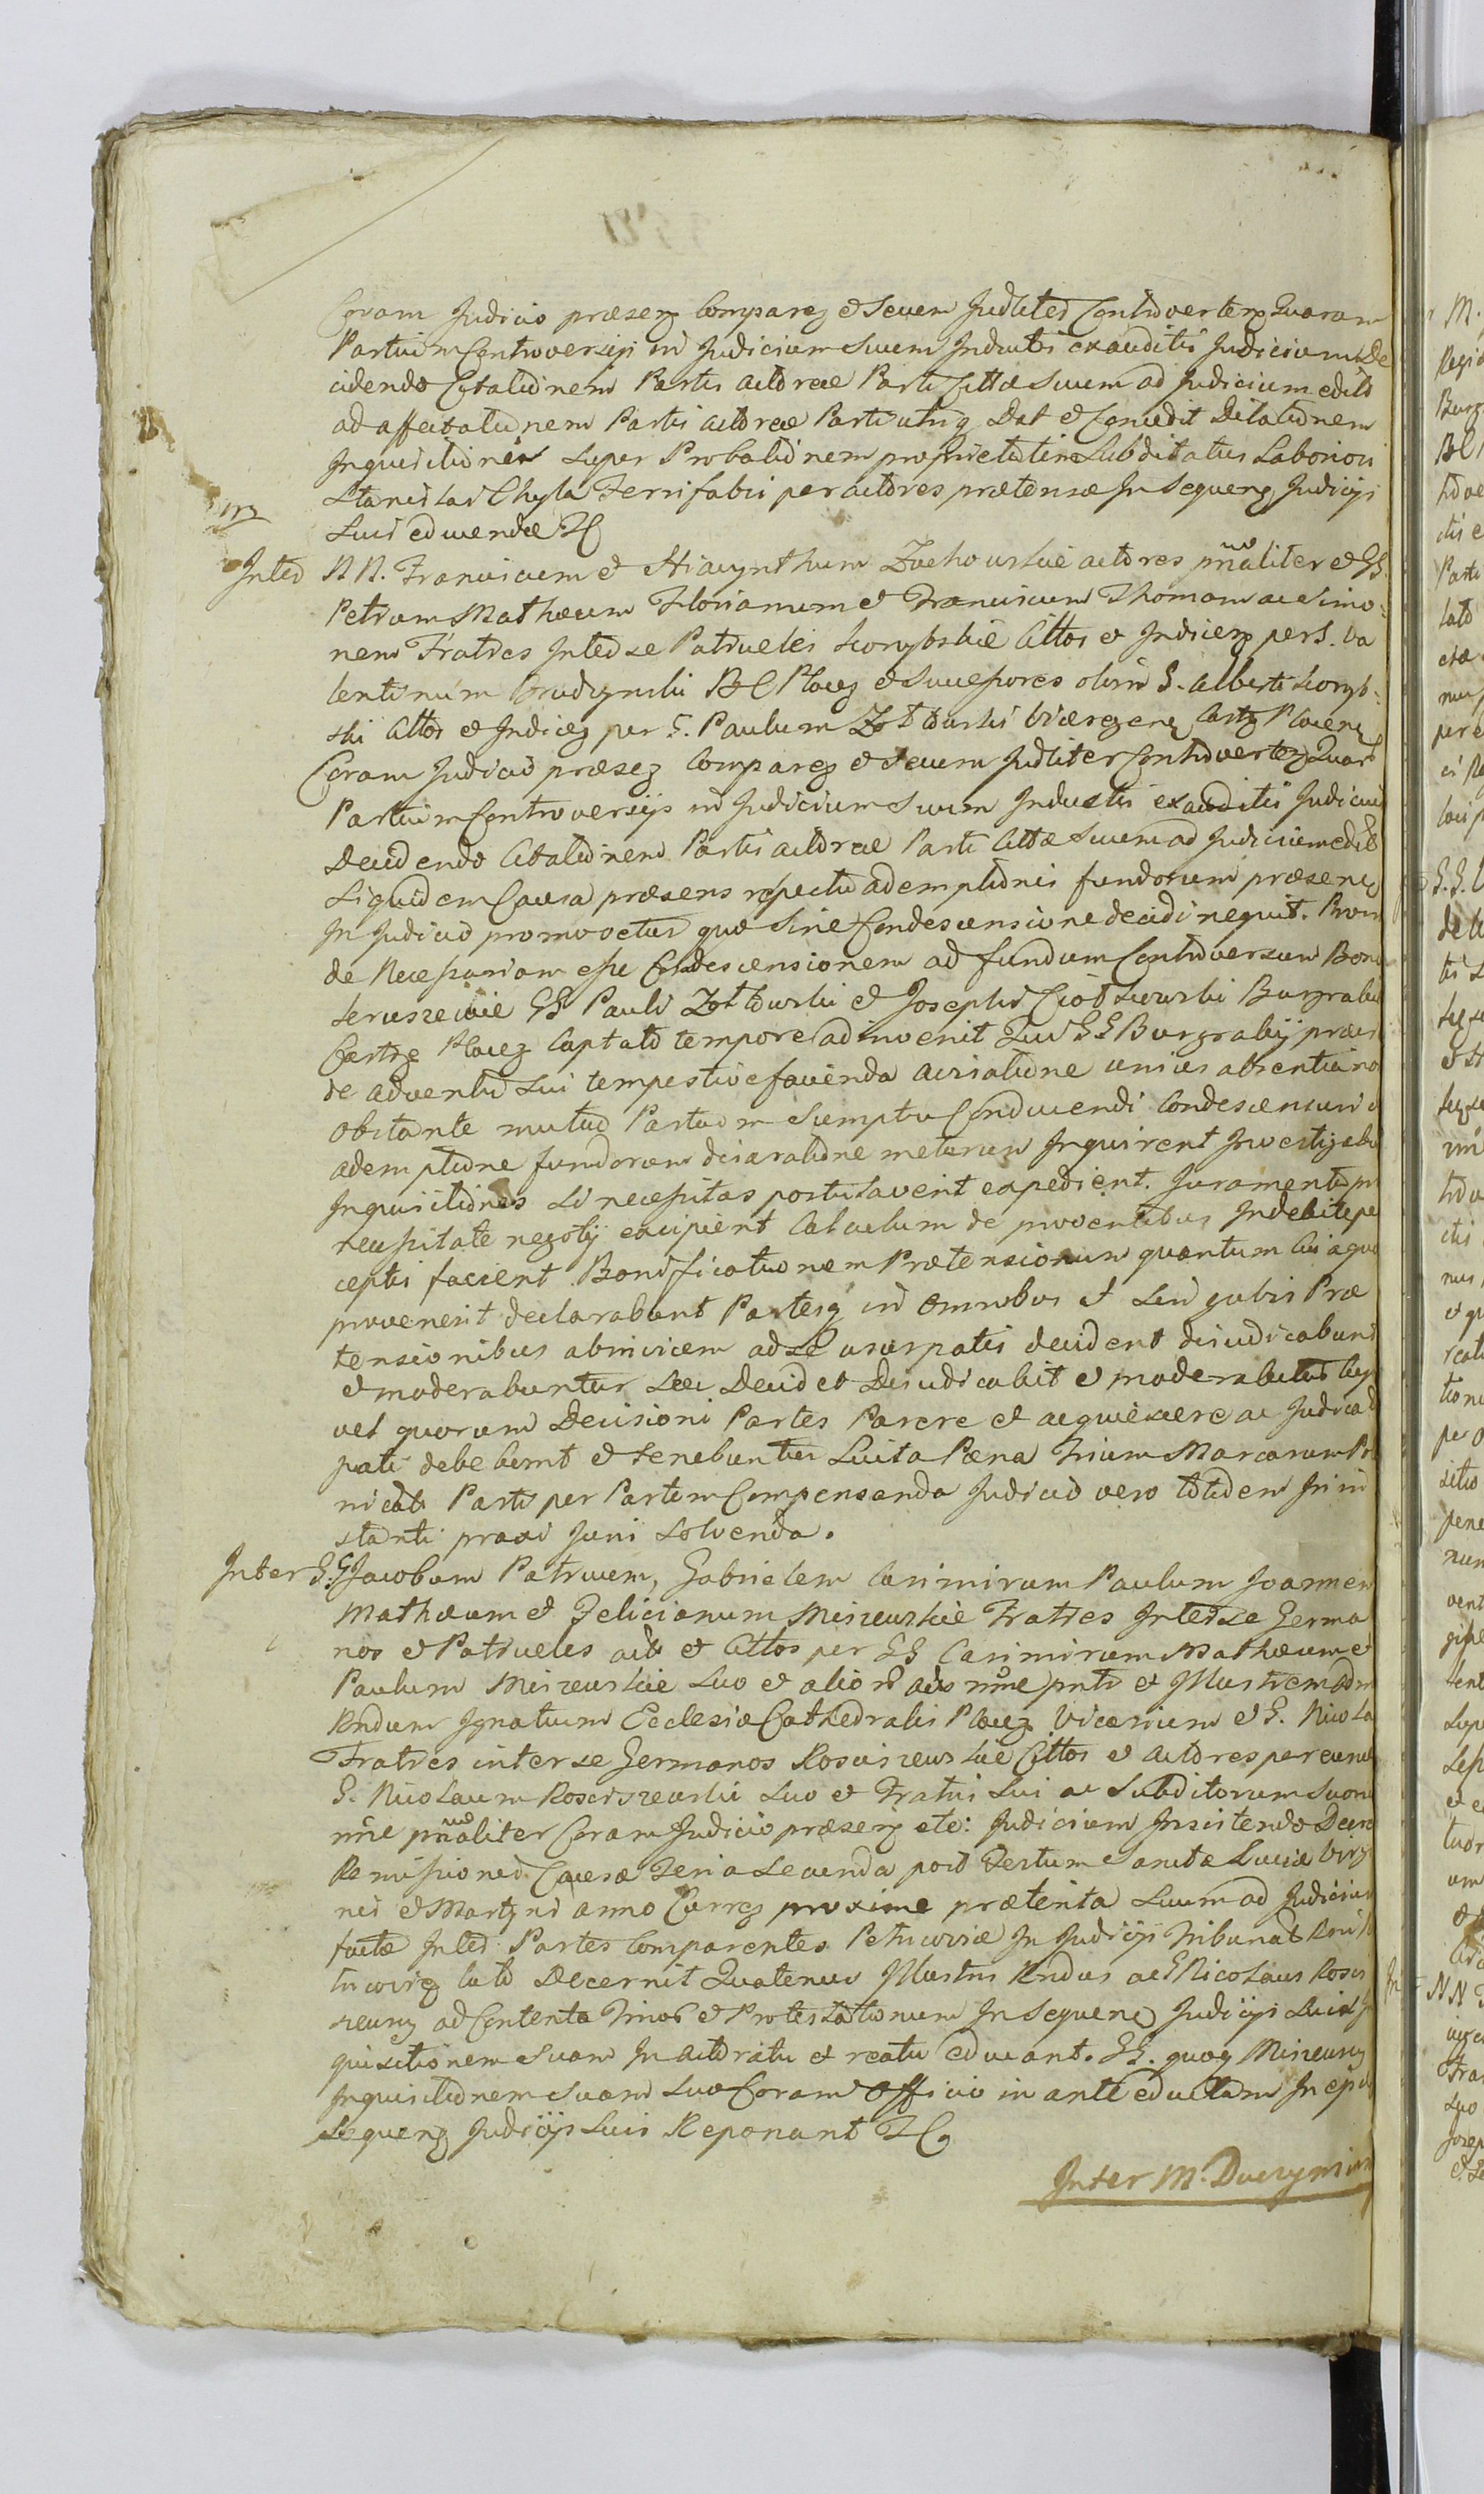 Coram Judicio præsen Comparen et Secum Judliter Controverten Quaram
Partium Controversijs in Judicium Suum Inductis exauditis Judicium De
cidendo Citationem Partis actoreæ Parti Cittæ Suum ad Judicium edit
ad affectationem Partis actoreæ Parti utriq Dat et Concedit Dilationem
Inquisitionis Super Probationem proprietatem Subditatus Laboriosi
Stanislai Chyla Ferrifabri per actores prætensæ In Sequen Judicijs
Suis educendæ
Inter N N. Franciscum et Hiacynthum Zochowskie actores pnnaliter et GG
Petrum Mathæum Florianum et Franciscum Thomam ac Simo=
nem Fratres Inter se Patrueles Skorybskie Cittos et Indicien per S. Va
lentinum Grudzynski B C Plocen et Successores olim S. Alberti Koryb=
ski Cittos et Indicien per G. Paulum Zottowski Vicesregen Castr Plocen
Coram Judicio præsen Comparen et Secum Judliter Controverten Quar
Partium Controversijs in Judicium Suum Inductis exauditis Judicium
Decidendo Citationem Partis actoreæ Parti Cittæ Suum ad Judicium edit
Siquidem Causa præsens respectu ademptionis fundorum præsen
In Judicio promovetur quæ Sine Condescensione decidi nequit. Proin
de Necessariam esse Condescensionem ad fundum Controversum Bono
Seruszewie GG Pauli Zottowski et Josephi Ciotkowski Burgrabi
Castren Plocen Captato tempore adinvenit Qui GG Burgrabij præ
de adventu Sui tempestive facienda avisatione unius absentia no
obstante mutuo Partium Sumptu Conducendi Condescensuri
ademptione fundorum disaratione metarum Inquirent Investigabu
Inquisitiones Si necessitas postulaverit expedient. Juramenta pr
necessitate negotij excipient Calculum de proventibus Indebite pe
ceptis facient Bonificationem Prætensionum quantum Cui a quo
provenerit declarabunt Partesq in Omnibus et Singulis Præ
tensionibus abinvicem ad se usurpatis decident disiudicabunt
et moderabuntur Seu Decidet Disiudicabit et moderabitur
vel quorum Decisioni Partes Parere et acquiescere ac Judica
pati debebunt et tenebuntur Suita Pæna Trium Marcarum Po
nicat Parti per Partem Compensanda Judicio vero totidem In in
stanti praxi Juni Solvenda.
Inter G. G Jacobum Patruum, Gabrielem Casimirum Paulum Joannem
Mathæum et Felicianum Miszewskie Fratres Inter se Germa
nos et Patrueles act et Cittos per GG Casimirum Mathæum et
Paulum Miszewskie Suo et alior act nne pnti et Illustrem Adm
Rndum Ignatium Ecclesiæ Cathedralis Plocen Vicarium et G. Nicola
Fratres inter se Germanos Rosciszewskie Cittos et actores per eund
G. Nicolaum Rosciszewski Suo et Fratris Sui ac Subditorum Suoru
nne pnnaliter Coram Judicio præsen etc: Judicium Insistendo Decre
Remissionis Causæ Feria Secunda post Festum Sanctæ Luciæ Virg
nis et Martyris anno Curren proxime præterita Suum ad Judicium
factæ Inter Partes Comparentes Petricoviæ In Judicijs Tribunal
tricovien lato Decernit Quatenus Illustris Rndus ac G Nicolaus Rosci
szewy ad Contenta Trinor et Protestationum In Sequen Judicijs Suis In
quisitionem Suam In actoratu et reatu educant. GG. quoq Miszewsy
Inquisitionem Suam Suo Coram Officio in ante eductam In
Sequen Judicijs Suis Reponant
Inter M. Duczymin